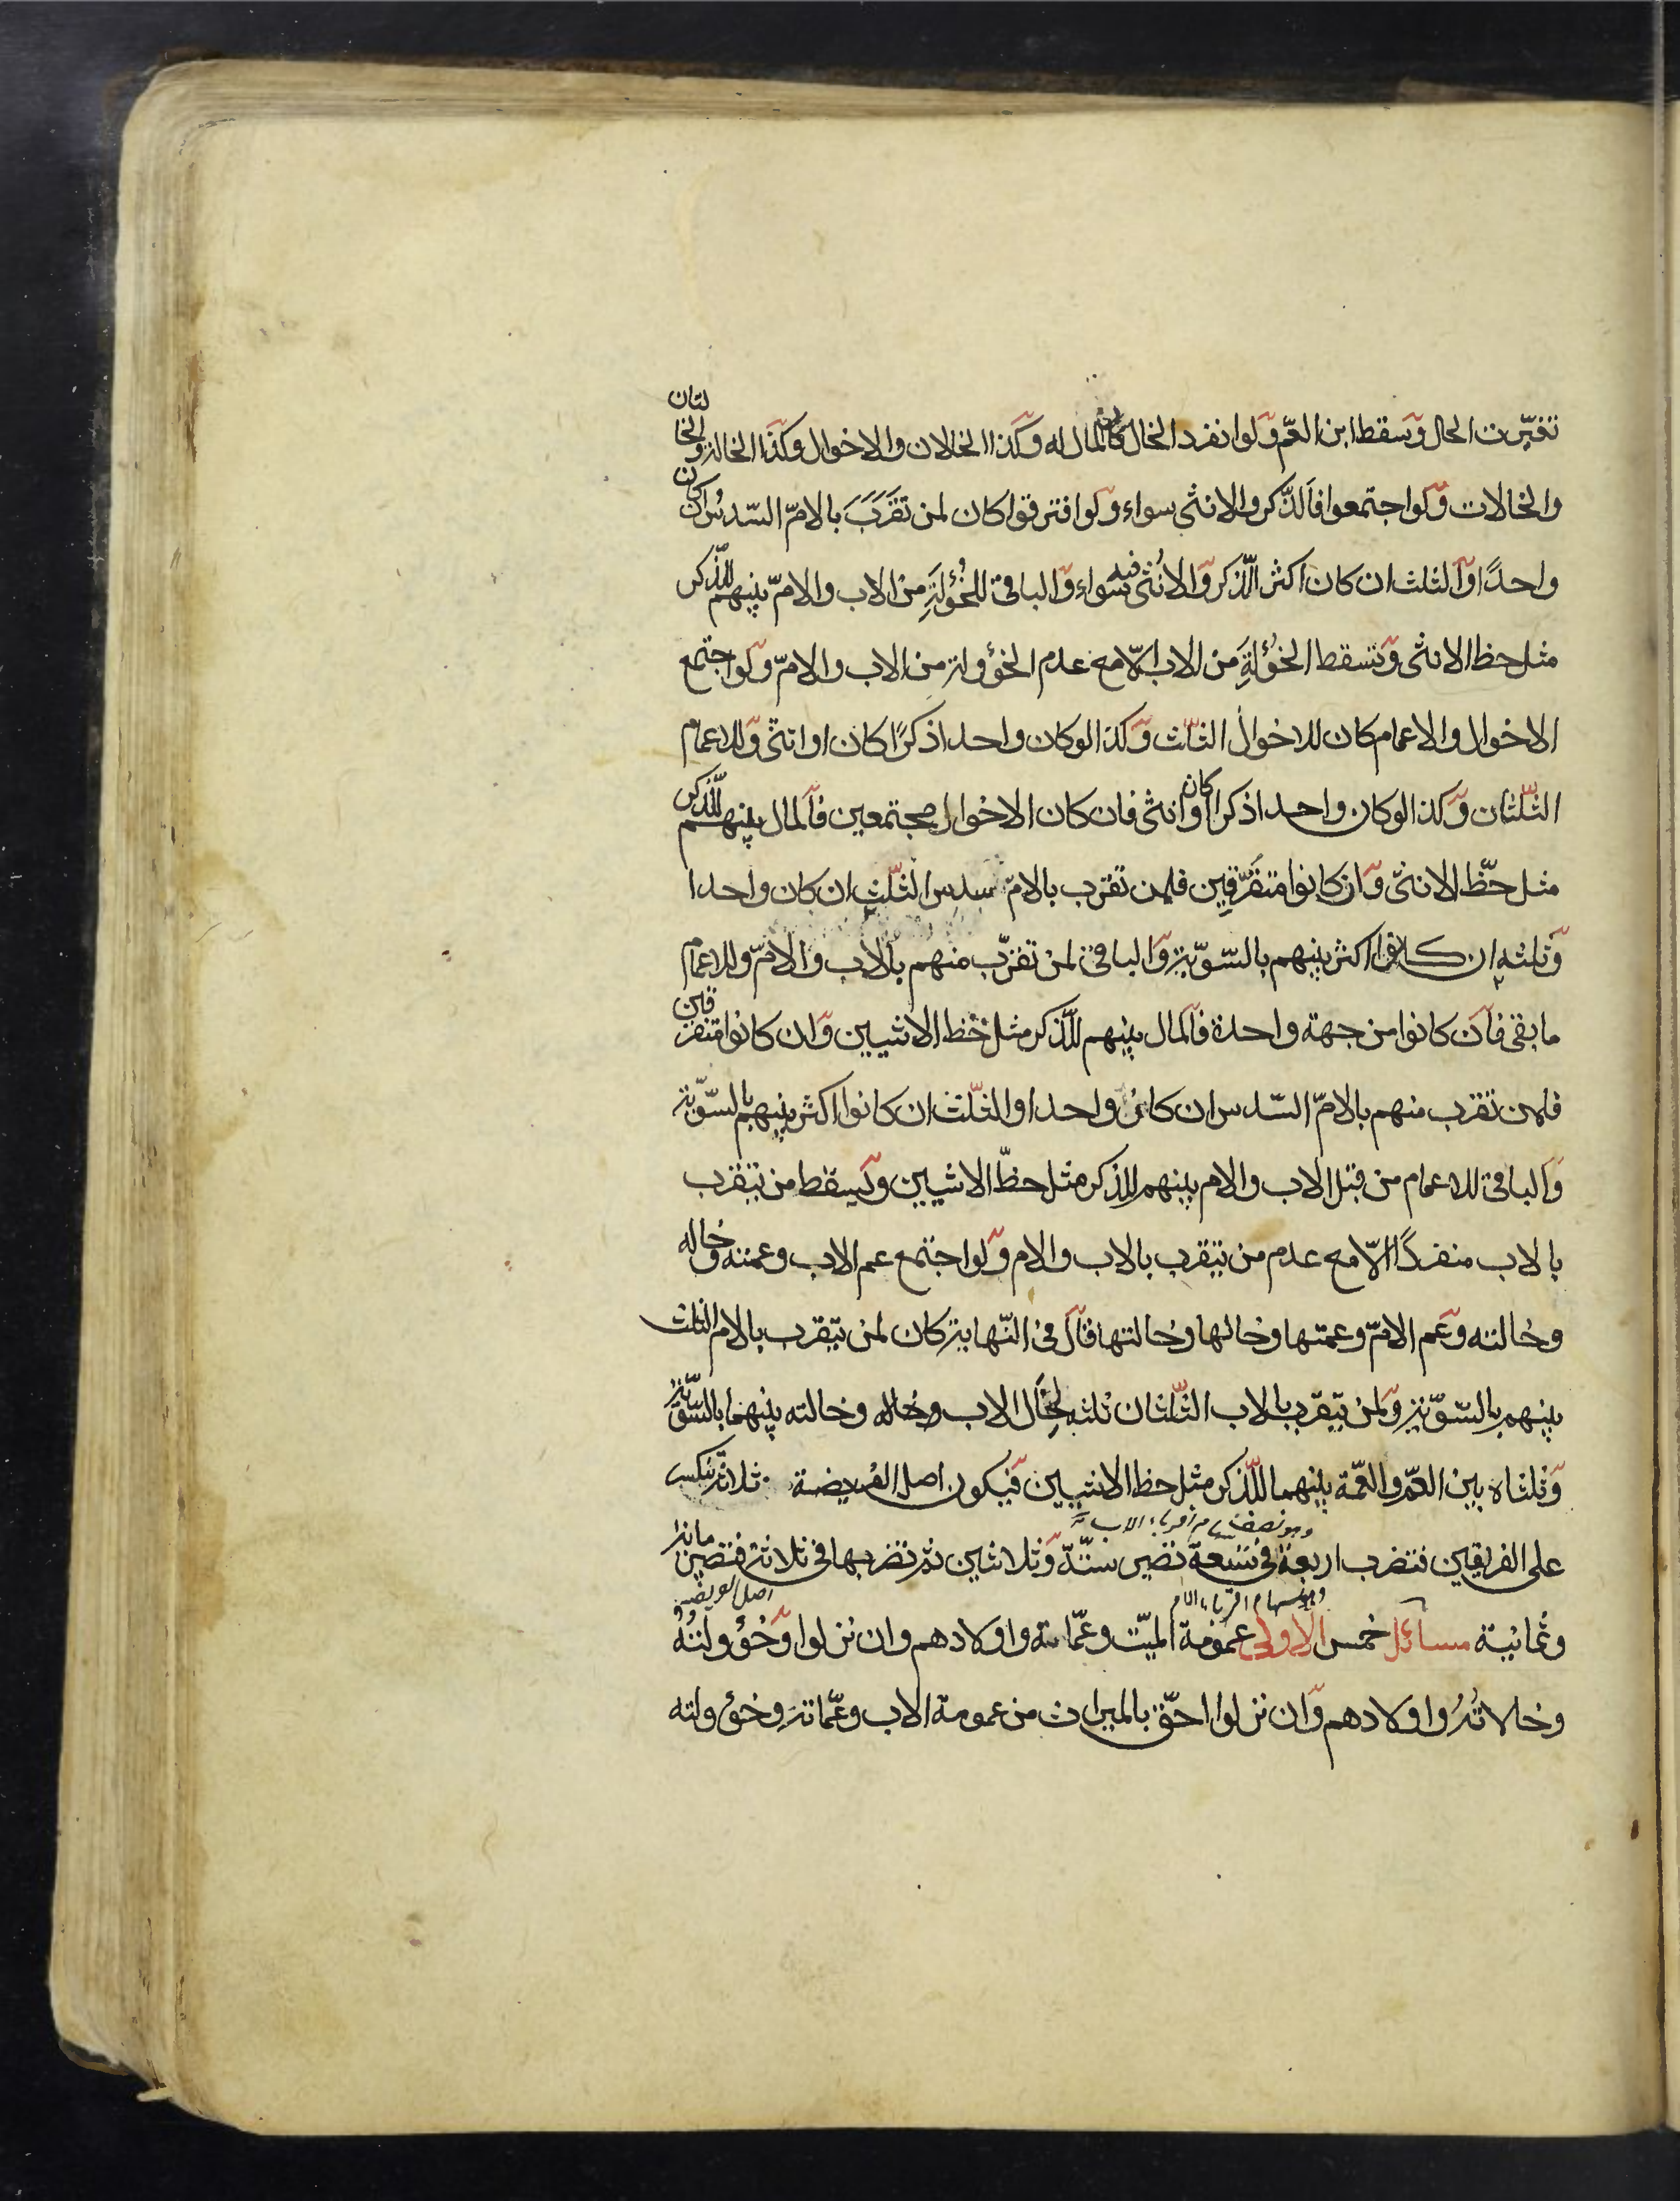 تغيّرت الحال وسقط ابن العمّ ولو انفرد الخال كان المال له وكذا الخالان والاخوال وكذا الخالة والخالتان
والخالات ولو اجتمعوا فالذّكر والانثى سواء ولو افترقوا كان لمن تقرّب بالامّ السّدس ان كان
واحدًا او الثلث ان كان اكثر الذّكر والانثى فيه سواء والباقي للخؤلة من الاب والامّ بينهم للذّكر
مثل حظ الانثى وتسقط الخؤلة من الاب الّا مع عدم الخؤولة من الاب والامّ ولو اجتمع
الاخوال والاعمام كان للاخوال الثلث وكذا لو كان واحدا ذكرًا كان او انثى وللاعمام
الثّلثان وكذا لو كان واحدا ذكرا كان او انثى فان كان الاخوال مجتمعين فالمال بينهم للذّكر
مثل حظّ الانثى وان كانوا متفرّقين فلمن تقرب بالامّ سدس الثّلث ان كان واحدا
وثلثه ان كانوا اكثر بينهم بالسّويّة والباقي لمن تقرّب منهم بالاب والامّ وللاعمام
ما بقى فان كانوا من جهة واحدة فالمال بينهم للذّكر مثل حظ الانثيين وان كانوا متفرقين
فلمن تقرب منهم بالامّ السّدس ان كان واحدا والثلث ان كانوا اكثر بينهم بالسّويّة
والباقي للاعمام من قبل الاب والام بينهم للذكر مثل حظّ الانثيين ويسقط من يتقرب
بالاب منفردًا الّا مع عدم من يتقرب بالاب والام ولو اجتمع عم الاب وعمته وخاله
وخالته وعم الامّ وعمتها وخالها وخالتها قال في النّهاية كان لمن يتقرب بالام الثلث
بينهم بالسّويّة ولمن يتقرّب بالاب الثّلثان ثلثه لخال الاب وخالته بينهما بالسّويّة
وثلثاه بين العمّ والعمّة بينهما للذّكر مثل حظ الانثيين فيكون اصل الفريضة ثلاثة تنكسر
على الفريقين فتضرب اربعة في تسعة تصير ستّة وثلاثين ثم تضربها في ثلاثة فتصير مائة
وثمانية مسائل خمس الاولى عمومة الميّت وعمّاته واولادهم وان نزلوا وخؤولته
وخالاته واولادهم وان نزلوا احقّ بالميراث من عمومة الاب وعمّاته وخؤولته